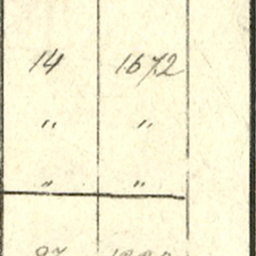 14 1672
" "
" "